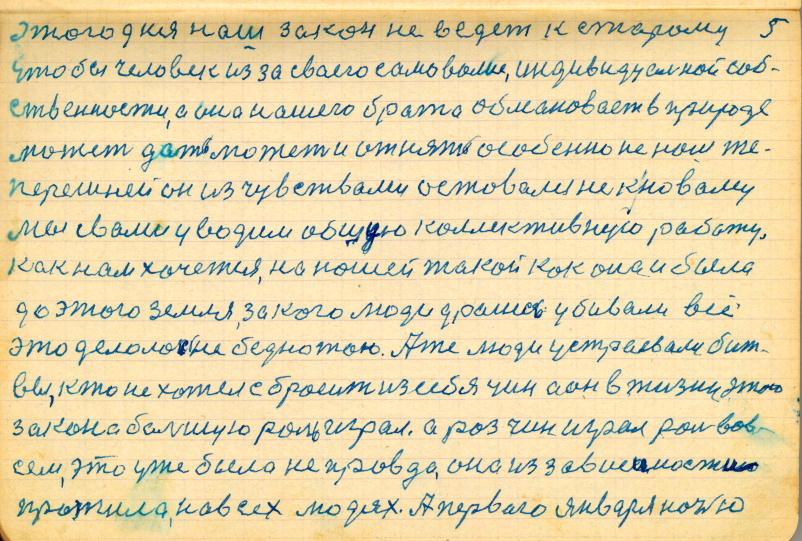 этого дня наш закон не ведет к старому 5
чтобы человек из за сваего самоволие, индивидуалной соб-
ственности, а она нашего брата обмановает в природе
может дать может и отнять особенно не наш те-
перешней он из чувствами оставался не к новаму
мы свами уводим общую коллективную работу,
как нам хочется, на ношей такой кок она и была
до этого земля, за кого люди дрались убивали всё
это делолось не беднотою. А те люди устраевали бит-
вы, кто не хотел сбросить из себя чин а он в жизни этого
закона балшую роль играл. а роз чин играл рол вов-
сем, это уже была не провда, она из зависимостию
прожила, на всех людях. А перваго января ночью